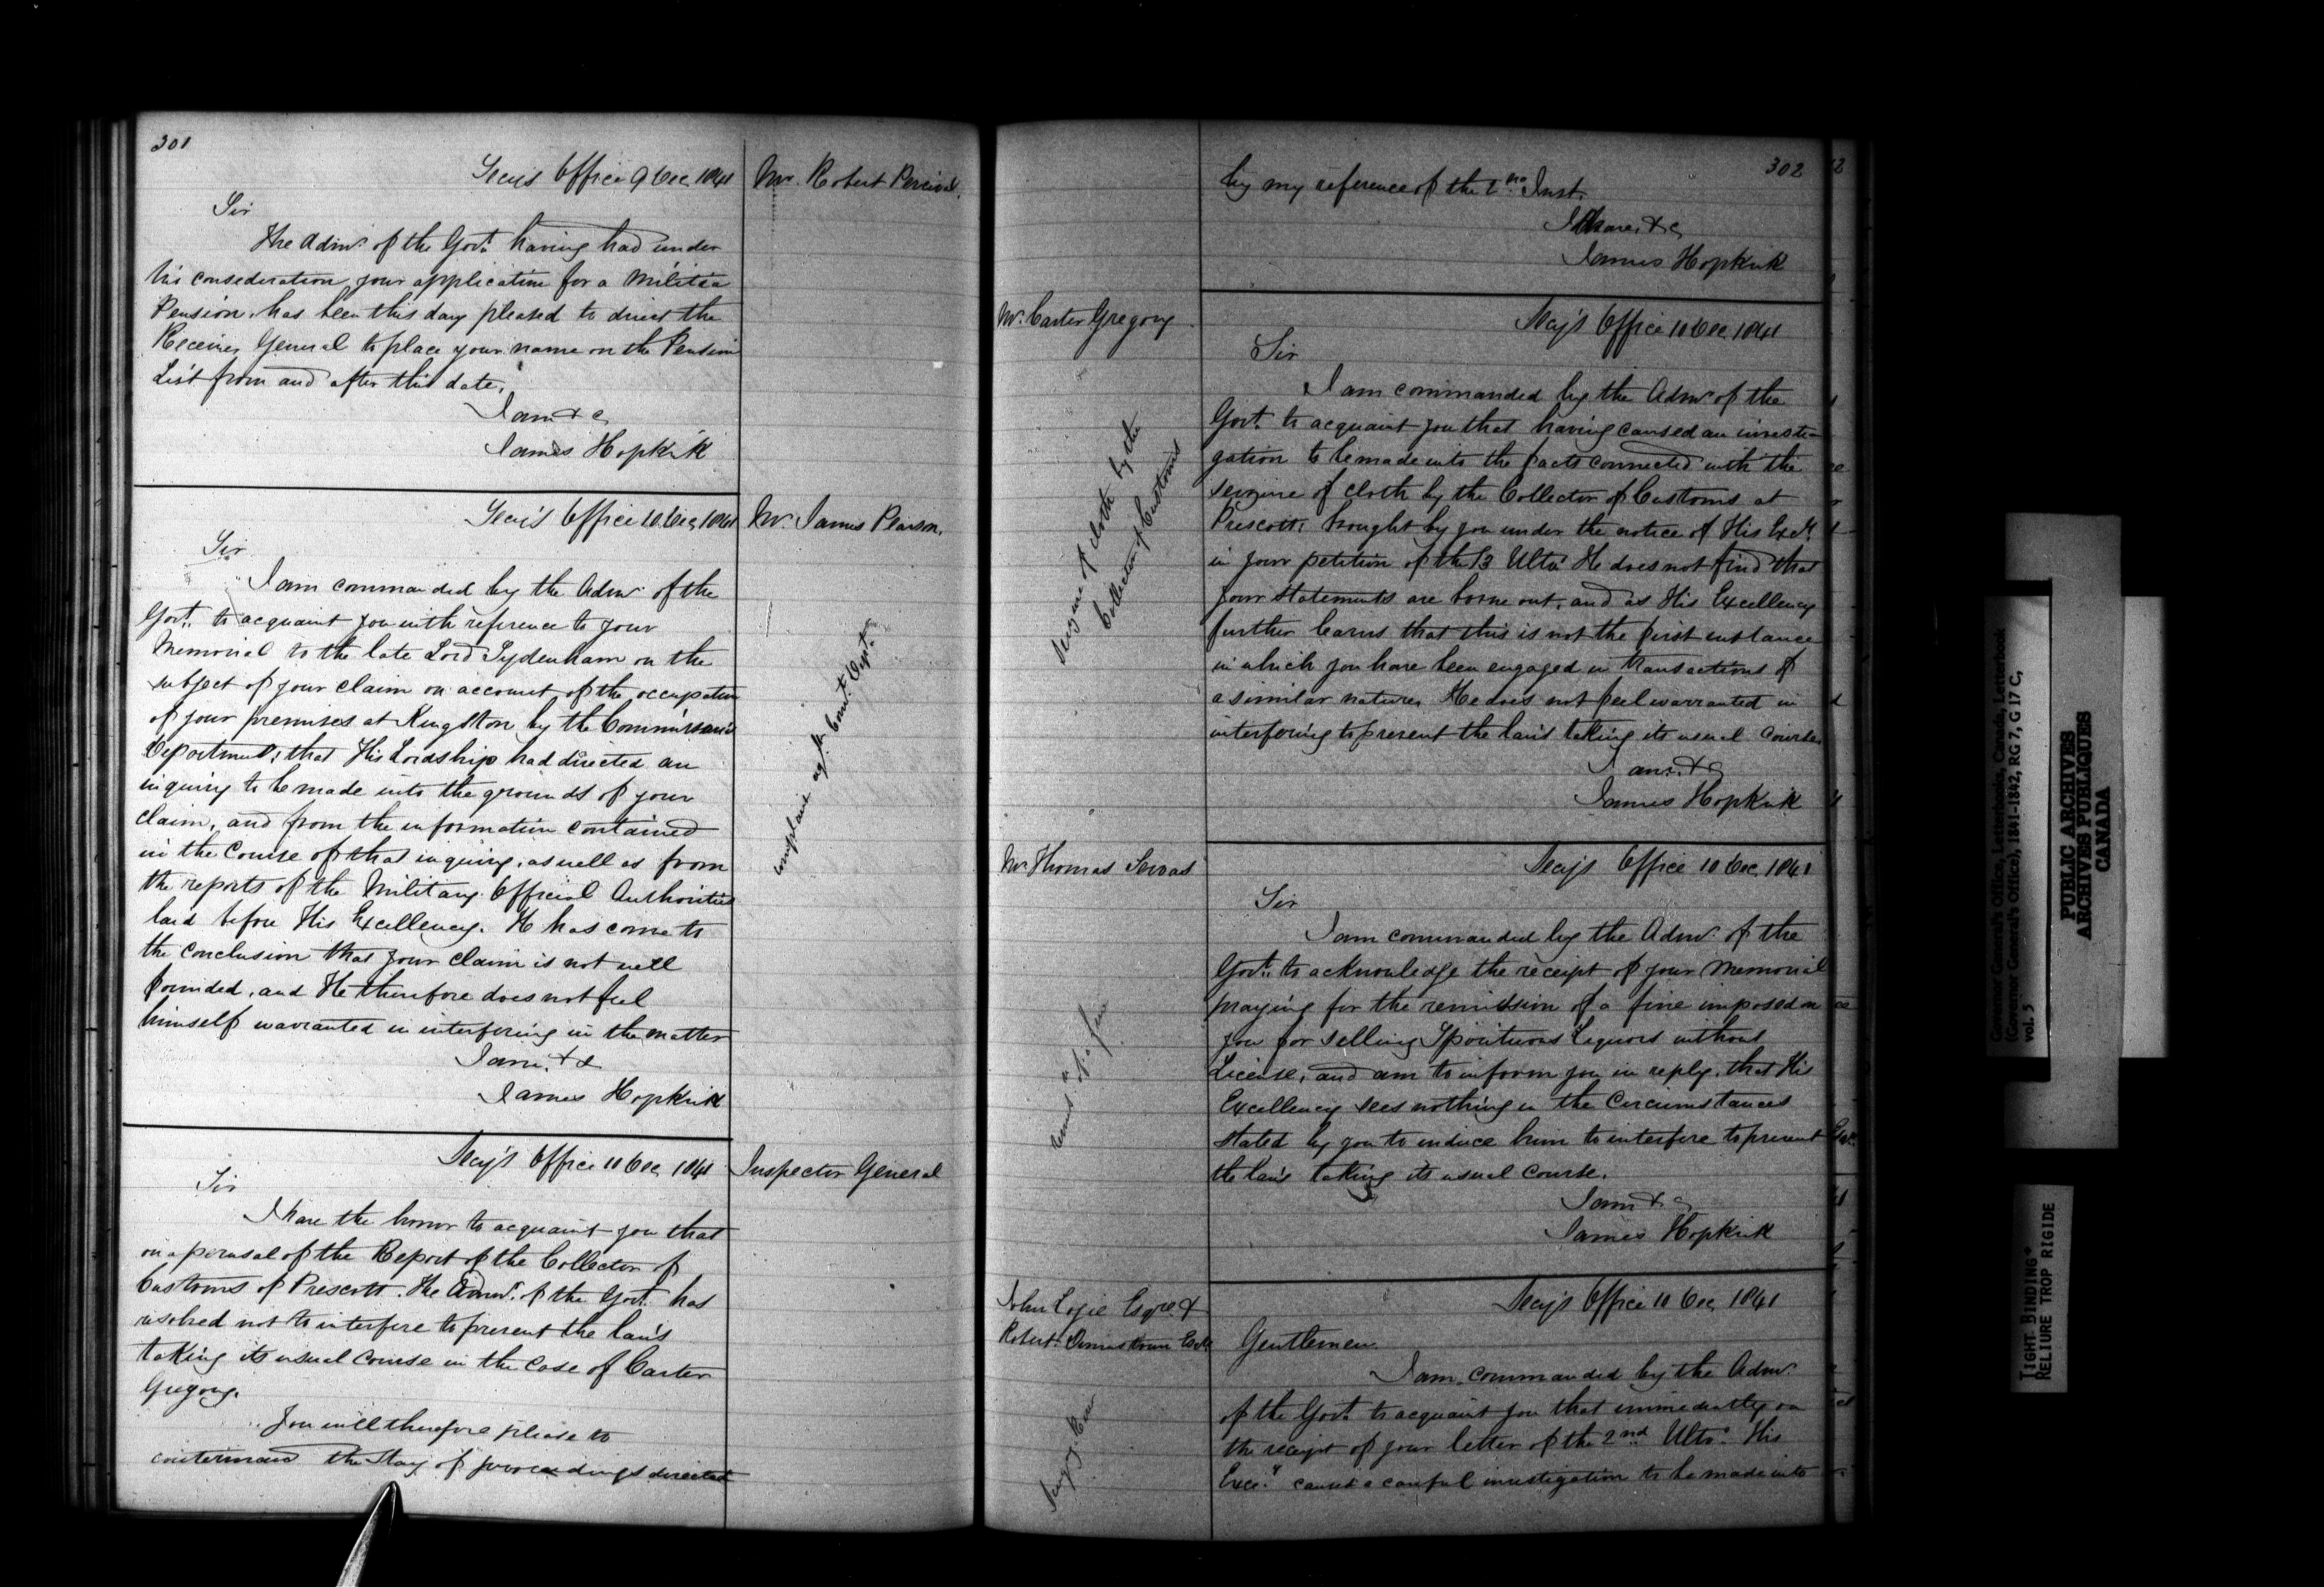 301
Secy's Office 9 Dec 1841
Mr. Robert Percival
Sir
The Admr. of the Govt. having had under
his consideration your application for a Militia
Pension, has been this day pleased to direct the
Receiver General to place your name on the Pension
List from and after this date.
I am &c
James Hopkirk
Secy's Office 10 Dec 1841
Mr. James Pearson.
Sir
I am commanded by the Admr. of the
Govt. to acquaint you with reference to your
Memorial to the late Lord Sydenham on the
subject of your claim on account of the occupation
of your premises at Kingston by the Commissariat
Department; that His Lordship had directed an
inquiry to be made into the grounds of your
claim, and from the information contained
in the course of that inquiry, as well as from
the reports of the Military Official Authorities
laid before His Excellency. He has come to
the conclusion that your claim is not well
founded, and He therefore does not feel
himself warranted in interfering in the matter
I am, &c
James Hopkirk
complaint agt. Comt. Dept.
Secy's Office 10 Dec 1841
Inspector General
Sir
I have the honor to acquaint you that
on a perusal of the Report of the Collector of
Customs of Prescott. The Admr. of the Govt. has
resolved not to interfere to prevent the law's
taking its usual course in the case of Carter
Gregory.
You will therefore please to
countermand the stay of proceedings directed
302
by my reference of the 2nd Inst.
I have, &c
James Hopkirk
Mr. Carter Gregory
Secy's Office 10 Dec 1841
Sir
I am commanded by the Admr of the
Govt. to acquaint you that having caused an investi-
gation to be made into the facts connected with the
seizure of cloth by the Collector of Customs at
Prescott, brought by you under the notice of His Excy.
in your petition of the 13 Ulto. He does not find that
your statements are borne out, and as His Excellency
further learns that this is not the first instance
in which you have been engaged in transactions of
a similar nature, He does not feel warranted in
interfering to prevent the law's taking its usual course
I am, &c
James Hopkirk
Seizure of cloth by the
Collector of Customs
Mr Thomas
Secy's Office 10 Dec. 1841
Sir
I am commanded by the Admr. of the
Govt. to acknowledge the receipt of your Memorial
praying for the remission of a fine imposed on
you for selling Spirituous Liquors without
License, and am to inform you in reply, that His
Excellency sees nothing in the Circumstances
stated by you to induce him to interfere to prevent
the law's taking its usual course.
I am &c
James Hopkirk
remisn of a fine
John Logie Esqre. &
Robert Armstrong Esqr.
Secy's Office 10 Dec 1841
Gentlemen.
I am commanded by the Admr.
of the Govt. to acquaint you that immediately on
the receipt of your letter of the 2nd Ulto. His
Excy. caused a careful investigation to be made into
Governor General's Office, Letterbooks, Canada, Letterbook
(Governor General's Office), 1841-1842, RG 7, G 17 C,
vol. 5
PUBLIC ARCHIVES
ARCHIVES PUBLIQUES
CANADA
TIGHT BINDING
RELIURE TROP RIGIDE